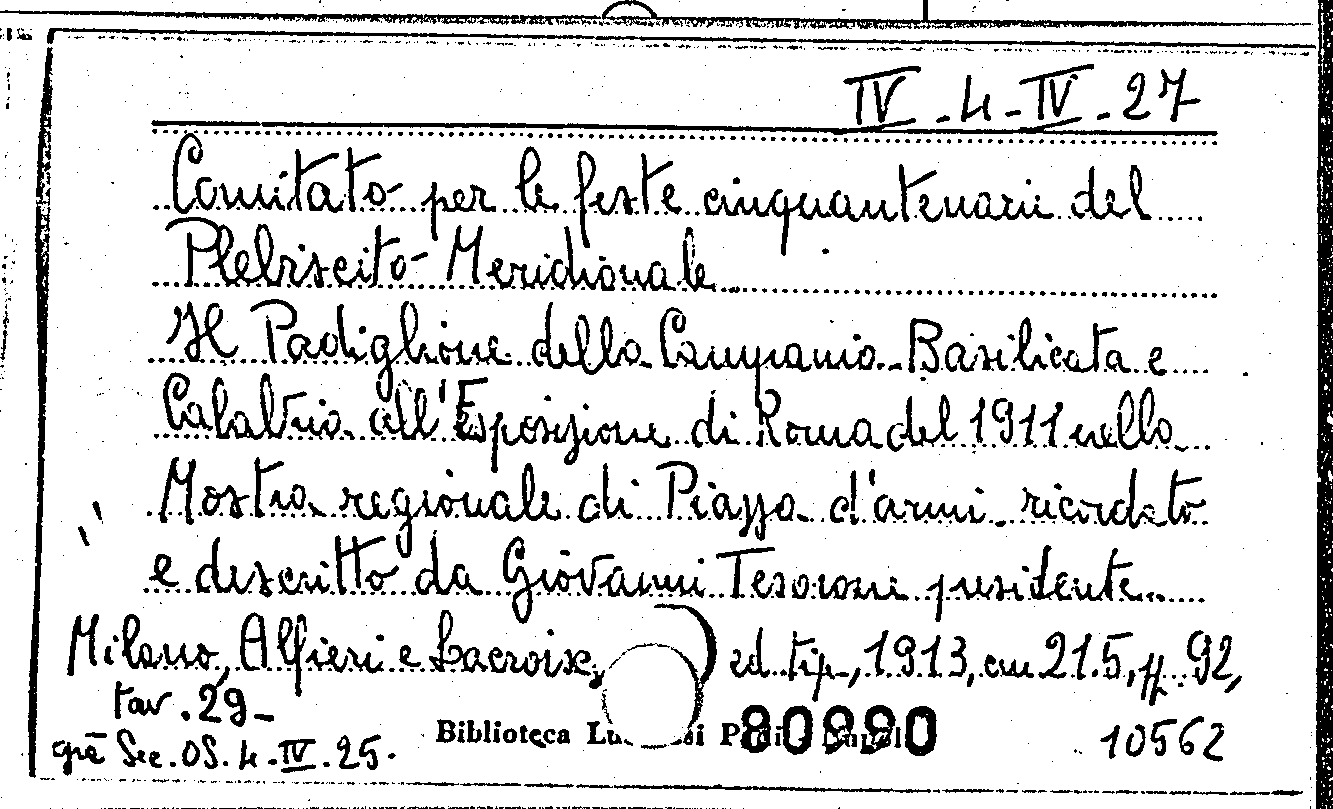 IV - 4 - IV - 27
Comitato per le feste cinquantenarie del
Plebiscito Meridionale
Il Padiglione della Campania Basilicata e
Calabria all'Esposizione di Roma del 1911 nella
Mostra regionale di Piazza d'armi ricordato
e descritto da Giovanni Tesorone presidente
Milano, Alfieri e Lacroix, ed. tip., 1913, cm 21.5, pp. 92,
tav. 29 -
già Sec. OS. 4 - IV - 25.
Biblioteca 80990
10562